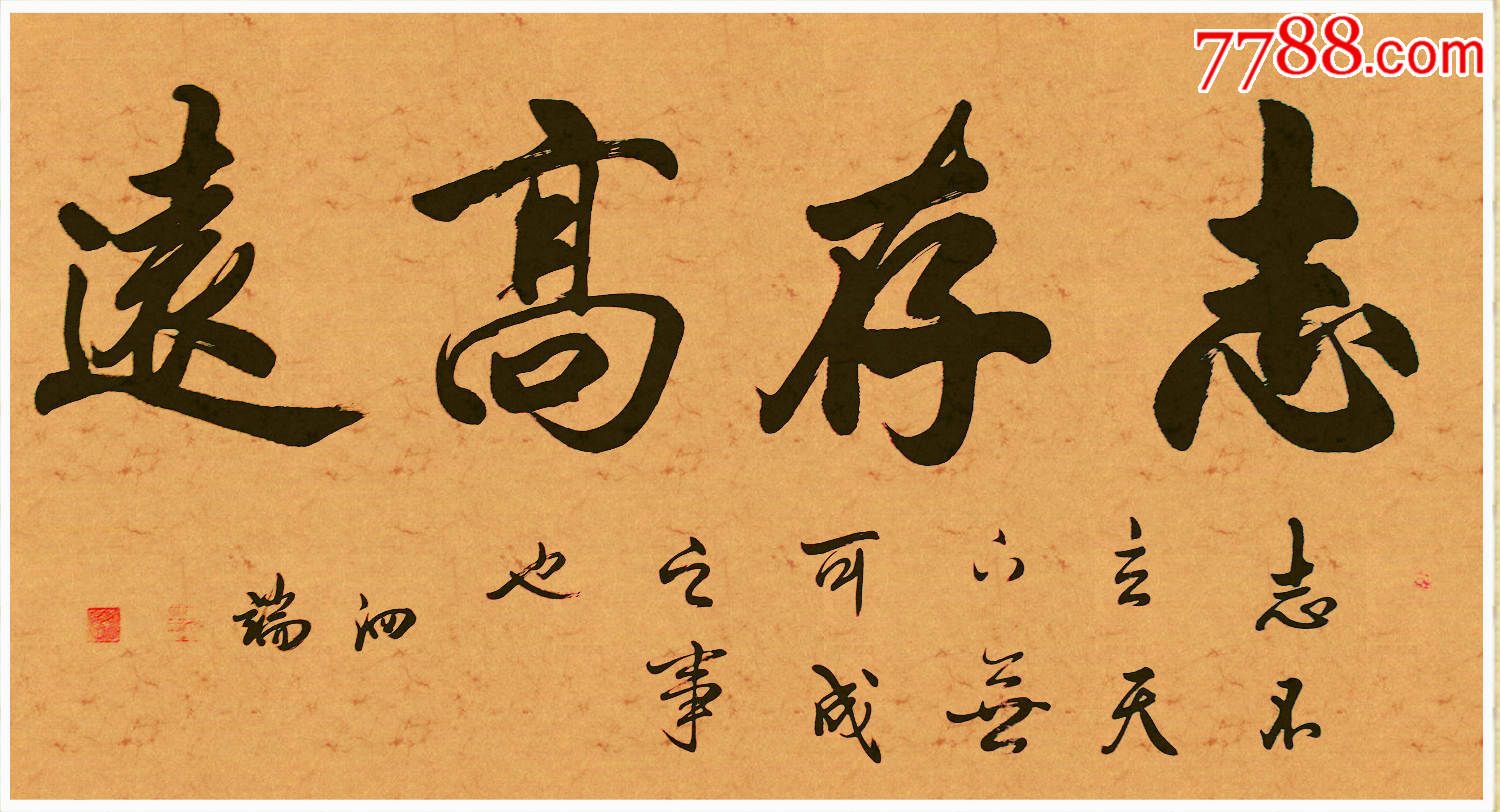 志存高遠
志不
立天
下無
可成
之事
也
泗
端
7788.com